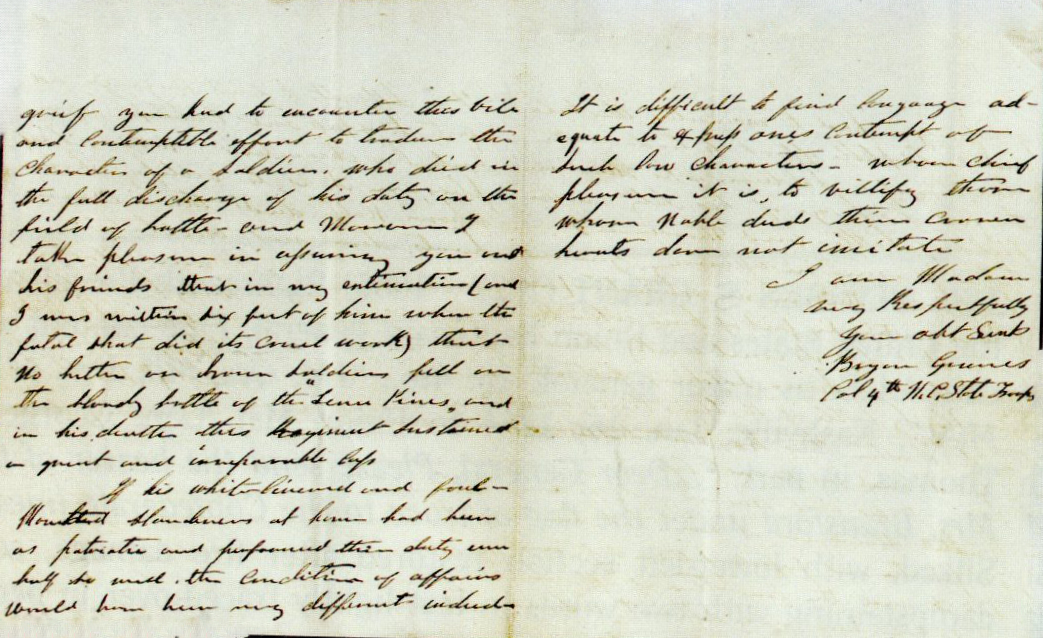 grief you had to encounter this vile
and Contemptible effort to traduce the
Character of a Soldier, who died in
the full discharge of his duty on the
field of battle - and Moreover I
take pleasure in assuring you and
his friends that in my estimation (and
I was within six feet of him when the
fatal shot did its cruel work) that
No better or braver Soldier fell on
the bloody battle of the "Seven Pines" and
in his death this Regiment Sustained
a great and irreparable loss
If his white livered and foul-
Mouthed slanderers at home had been
as patriotic and performed their duty one
half so well. the Condition of affairs
would have been very different indeed
It is difficult to find language ad-
equate to express ones Contempt of
such low characters - whose chief
pleasure it is, to villify those
whose Noble deeds their craven
hearts dare not imitate
I am Madam
very Respectfully
Your obt Servt
Bryan Grimes
Col 4th N.C. State Troops